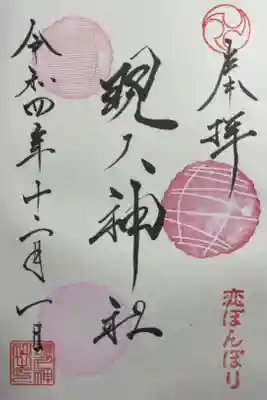 奉拝
現人神社
令和四年十二月一日
恋ぼんぼり